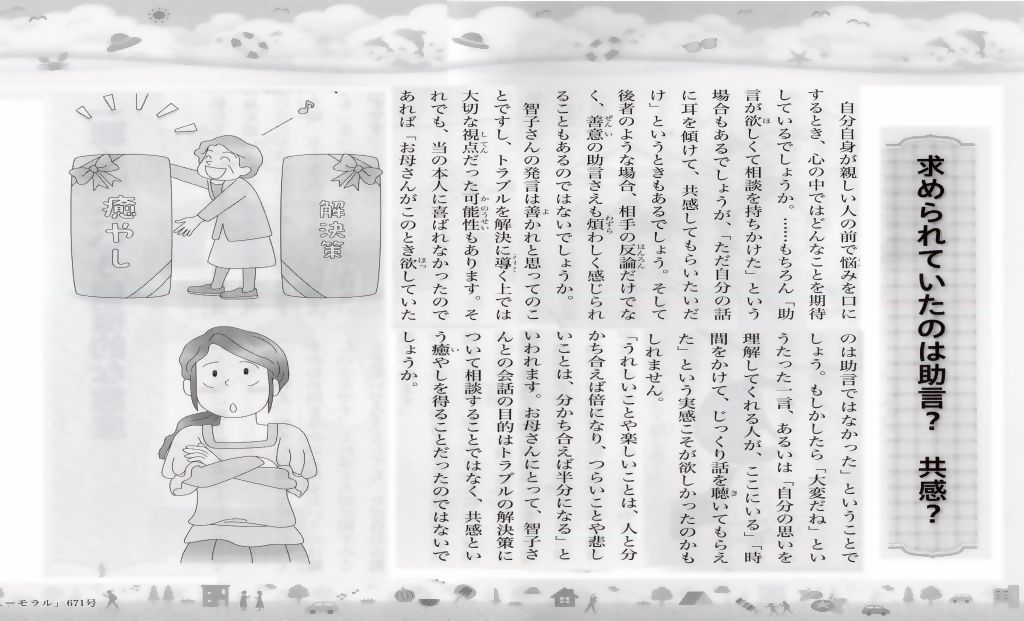 求められていたのは助言？　共感？
自分自身が親しい人の前で悩みを口に
するとき、心の中ではどんなことを期待
しているでしょうか。……もちろん「助
言が欲しくて相談を持ちかけた」という
場合もあるでしょうが、「ただ自分の話
に耳を傾けて、共感してもらいたいだ
け」というときもあるでしょう。そして
後者のような場合、相手の反論だけでな
く、善意の助言さえも煩わしく感じられ
ることもあるのではないでしょうか。
智子さんの発言は善かれと思ってのこ
とですし、トラブルを解決に導く上では
大切な視点だった可能性もあります。そ
れでも、当の本人に喜ばれなかったので
あれば「お母さんがこのとき欲していた
のは助言ではなかった」ということで
しょう。もしかしたら「大変だね」とい
うたった一言、あるいは「自分の思いを
理解してくれる人が、ここにいる」「時
間をかけて、じっくり話を聴いてもらえ
た」という実感こそが欲しかったのかも
しれません。
「うれしいことや楽しいことは、人と分
かち合えば倍になり、つらいことや悲し
いことは、分かち合えば半分になる」と
いわれます。お母さんにとって、智子さ
んとの会話の目的はトラブルの解決策に
ついて相談することではなく、共感とい
う癒やしを得ることだったのではないで
しょうか。
解決策
癒やし
ーモラル」671号